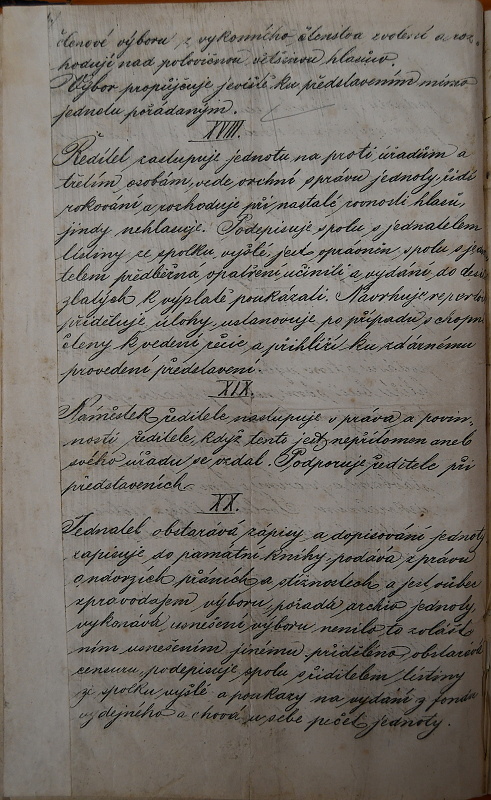 členové výboru z výkonného členstva zvolení a roz-
hodují nad poloviční většinou hlasův.
Výbor propůjčuje jeviště ku představením mimo
jednotu pořádaným.
XVIII.
Ředitel zastupuje jednotu na proti úřadům a
třetím osobám, vede vrchní správu jednoty, řídí
rokování a rozhoduje při nastalé rovnosti hlasů,
jindy nehlasuje. Podepisuje spolu s jednatelem
listiny ze spolku vyšlé, jest oprávněn, spolu s jedna-
telem předběžná opatření učiniti a vydání do deseti
zlatých k výplatě poukázati. Navrhuje repertoir
přiděluje úlohy, ustanovuje po případu s chopné
členy k vedení režie a přihlíží ku zdárnému
provedení představení.
XIX.
Náměstek ředitele nastupuje v práva a povin-
nosti ředitele, když tento jest nepřítomen aneb
svého úřadu se vzdal. Podporuje ředitele při
představeních.
XX.
Jednatel obstarává zápisy a dopisování jednoty
zapisuje do památní knihy, podává zprávu
o přáních a stížnostech a jest vůbec
zpravodajem výboru, pořádá archiv jednoty,
vykonává usnešení výboru nenilo to zvlášt-
ním usnešením jinému přiděleno, obstarává
censuru, podepisuje spolu s ředitelem listiny
ze spolku vyšlé a poukazy na vydání z fondu
výdejného a chová u sebe pečeť jednoty.